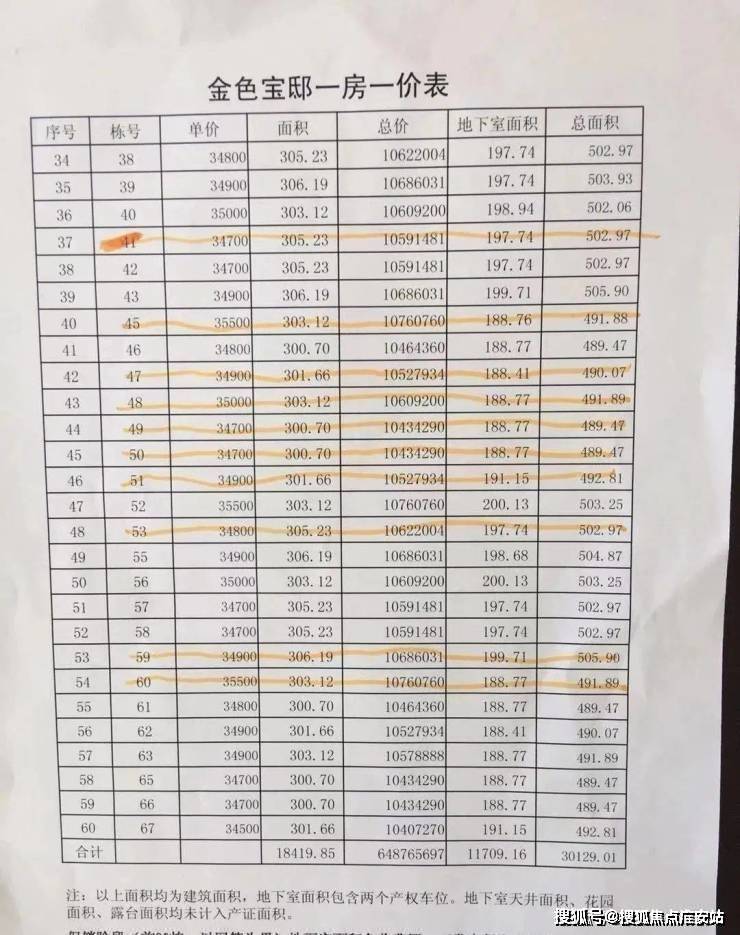 金色宝邸一房一价表
序号 栋号 单价 面积 总价 地下室面积 总面积
34 38 34800 305.23 10622004 197.74 502.97
35 39 34900 306.19 10686031 197.74 503.93
36 40 35000 303.12 10609200 198.94 502.06
37 41 34700 305.23 10591481 197.74 502.97
38 42 34700 305.23 10591481 197.74 502.97
39 43 34900 306.19 10686031 199.71 505.90
40 45 35500 303.12 10760760 188.76 491.88
41 46 34800 300.70 10464360 188.77 489.47
42 47 34900 301.66 10527934 188.41 490.07
43 48 35000 303.12 10609200 188.77 491.89
44 49 34700 300.70 10434290 188.77 489.47
45 50 34700 300.70 10434290 188.77 489.47
46 51 34900 301.66 10527934 191.15 492.81
47 52 35500 303.12 10760760 200.13 503.25
48 53 34800 305.23 10622004 197.74 502.97
49 55 34900 306.19 10686031 198.68 504.87
50 56 35000 303.12 10609200 200.13 503.25
51 57 34700 305.23 10591481 197.74 502.97
52 58 34700 305.23 10591481 197.74 502.97
53 59 34900 306.19 10686031 199.71 505.90
54 60 35500 303.12 10760760 188.77 491.89
55 61 34800 300.70 10464360 188.77 489.47
56 62 34900 301.66 10527934 188.41 490.07
57 63 34900 303.12 10578888 188.77 491.89
58 65 34700 300.70 10434290 188.77 489.47
59 66 34700 300.70 10434290 188.77 489.47
60 67 34500 301.66 10407270 191.15 492.81
合计 18419.85 648765697 11709.16 30129.01
注：以上面积均为建筑面积，地下室面积包含两个产权车位。地下室天井面积、花园
面积、露台面积均未计入产证面积。
搜狐号@搜狐焦点启安站